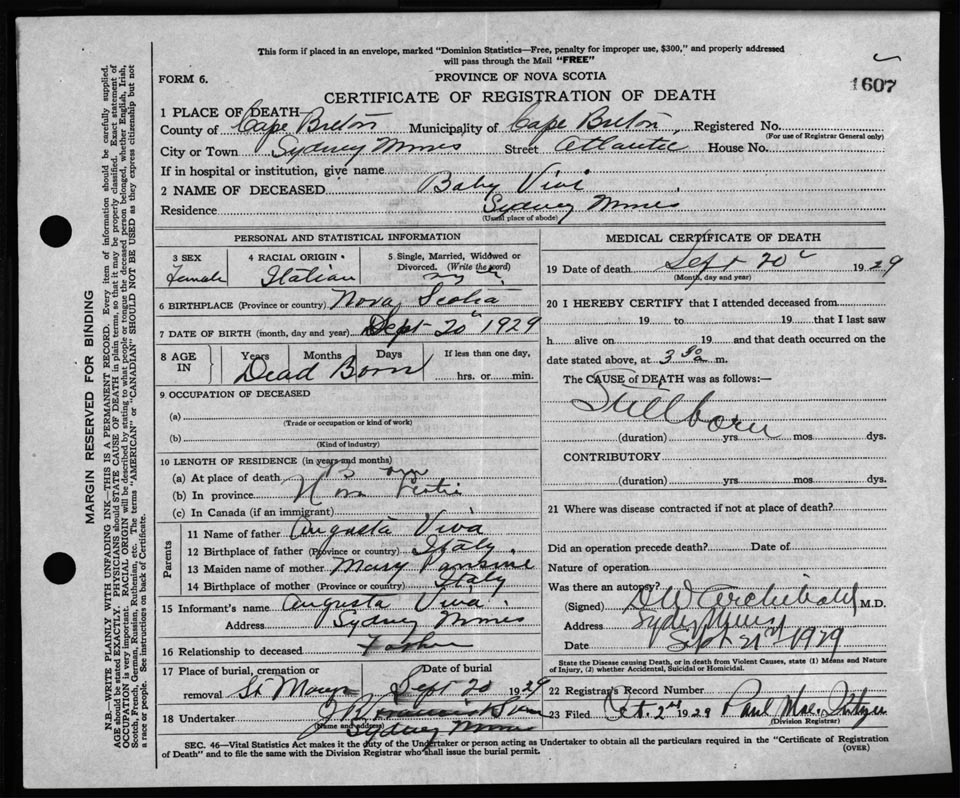 This form if placed in an envelope, marked "Dominion Statistics—Free, penalty for improper use, $300," and properly addressed
will pass through the Mail "FREE"
FORM 6.
PROVINCE OF NOVA SCOTIA
1607
CERTIFICATE OF REGISTRATION OF DEATH
1 PLACE OF DEATH
County of Cape Breton Municipality of Cape Breton Registered No.
(For use of Registrar General only)
City or Town Sydney Mines Street Atlantic House No.
If in hospital or institution, give name
2 NAME OF DECEASED Baby Vivi
Residence Sydney Mines
(Usual place of abode)
PERSONAL AND STATISTICAL INFORMATION
3 SEX Female
4 RACIAL ORIGIN Italian
5 Single, Married, Widowed or Divorced. (Write the word)
6 BIRTHPLACE (Province or country) Nova Scotia
7 DATE OF BIRTH (month, day and year) Sept 20 1929
8 AGE IN Years Months Days If less than one day,
Dead Born hrs. or min.
9 OCCUPATION OF DECEASED
(a)
(Trade or occupation or kind of work)
(b)
(Kind of industry)
10 LENGTH OF RESIDENCE (in years and months)
(a) At place of death Born
(b) In province Nova Scotia
(c) In Canada (if an immigrant)
Parents
11 Name of father Augusta Viva
12 Birthplace of father (Province or country) Italy.
13 Maiden name of mother Mary
14 Birthplace of mother (Province or country) Italy
15 Informant's name Augusta Viva.
Address Sydney Mines
16 Relationship to deceased Father
17 Place of burial, cremation or removal St Marys Date of burial Sept 20 1929
18 Undertaker
(Name and address) Sydney Mines
MEDICAL CERTIFICATE OF DEATH
19 Date of death Sept 20 1929
(Month, day and year)
20 I HEREBY CERTIFY that I attended deceased from
19 to 19 that I last saw
h alive on 19 and that death occurred on the
date stated above, at 3 m.
The CAUSE of DEATH was as follows:—
Stillborn
(duration) yrs. mos. dys.
CONTRIBUTORY
(duration) yrs. mos. dys.
21 Where was disease contracted if not at place of death?
Did an operation precede death? Date of
Nature of operation
Was there an autopsy?
(Signed) Archibald M.D.
Address Sydney Mines
Date Sept 21st 1929
State the Disease causing Death, or in death from Violent Causes, state (1) Means and Nature
of Injury, (2) whether Accidental, Suicidal or Homicidal.
22 Registrar's Record Number
23 Filed Oct. 2nd 1929 Paul Mac.
(Division Registrar)
SEC. 46—Vital Statistics Act makes it the duty of the Undertaker or person acting as Undertaker to obtain all the particulars required in the "Certificate of Registration
of Death" and to file the same with the Division Registrar who shall issue the burial permit.
(OVER)
MARGIN RESERVED FOR BINDING
N.B.—WRITE PLAINLY WITH UNFADING INK—THIS IS A PERMANENT RECORD. Every item of information should be carefully supplied.
AGE should be stated EXACTLY. PHYSICIANS should STATE CAUSE OF DEATH in plain terms, so that it may be properly classified. Exact statement of
OCCUPATION is very important. RACIAL ORIGIN will be described by stating to what people or tongue the deceased person belonged, whether English, Irish,
Scotch, French, German, Russian, Ruthenian, etc. The terms "AMERICAN" or "CANADIAN" SHOULD NOT BE USED as they express citizenship but not
a race or people. See instructions on back of Certificate.